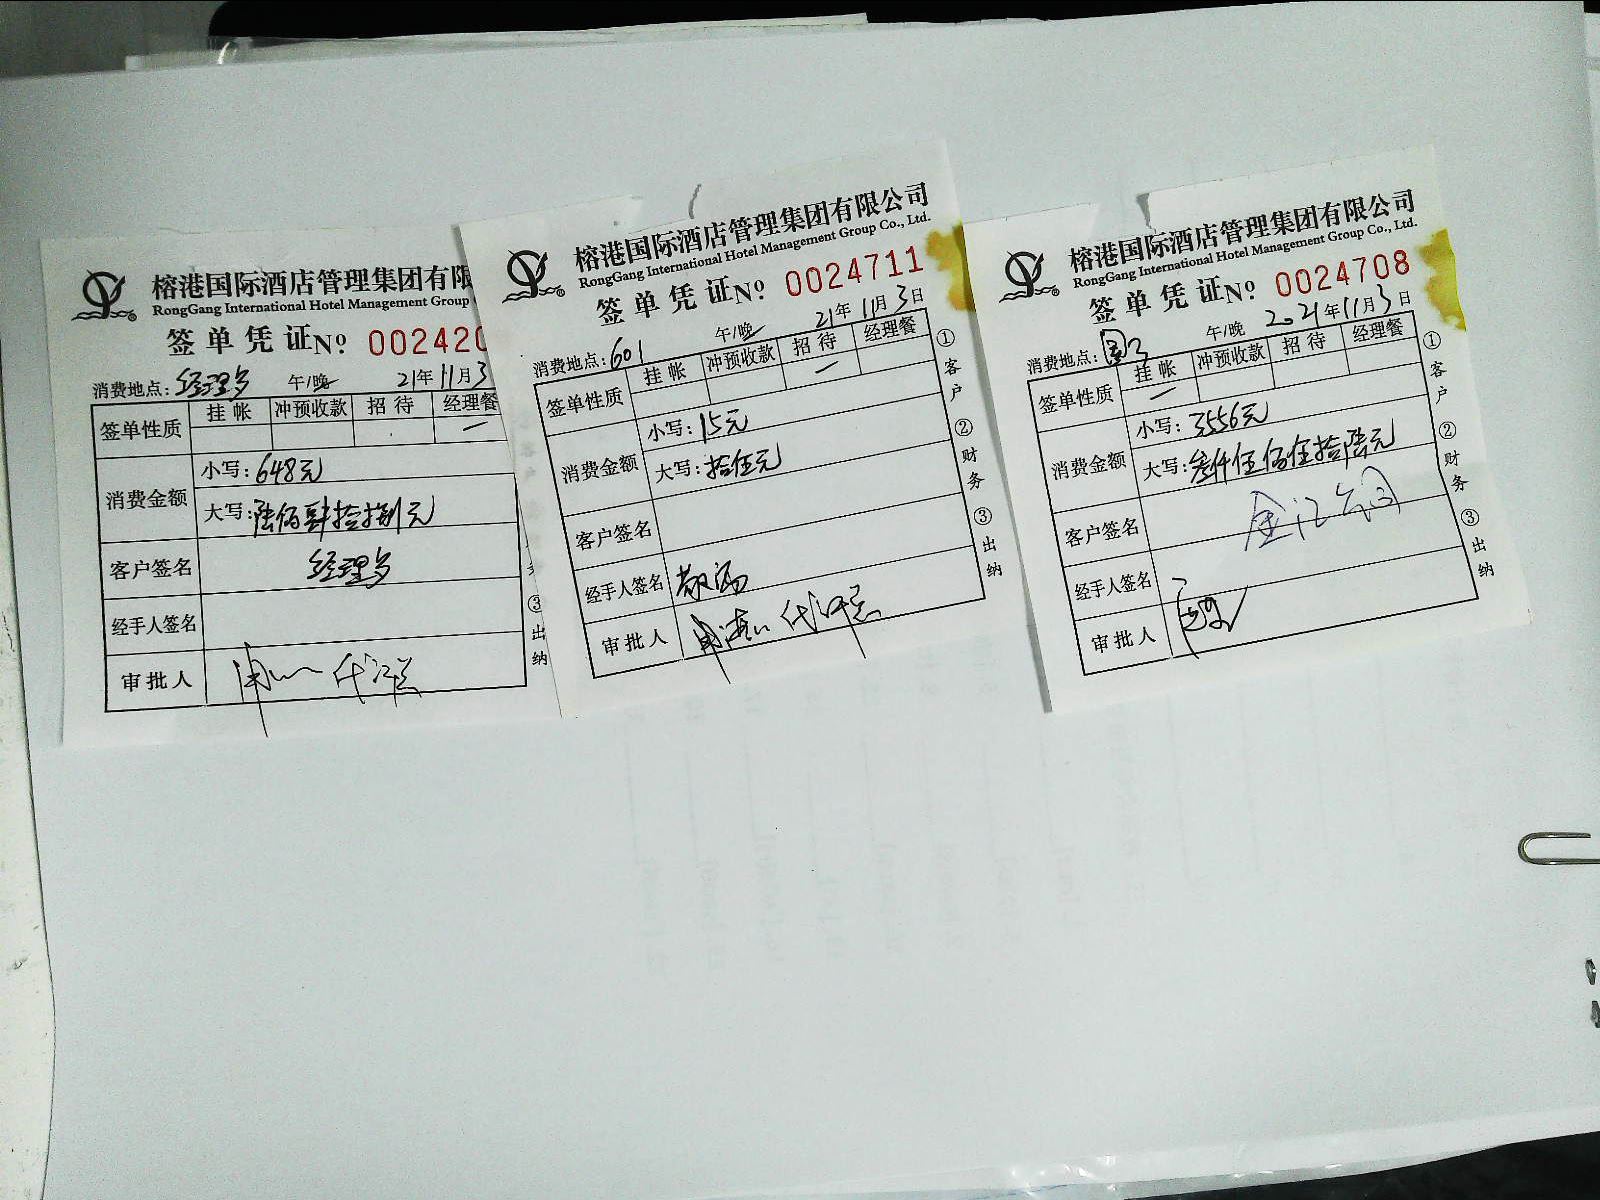 榕港国际酒店管理集团有限
RongGang International Hotel Management Group
签单凭证No. 002420
消费地点:经理餐 午/晚 21年11月3
签单性质 挂帐 冲预收款 招待 经理餐
一
消费金额 小写:648元
大写:陆佰肆拾捌元
客户签名 经理餐
经手人签名
审批人
③出纳
榕港国际酒店管理集团有限公司
RongGang International Hotel Management Group Co., Ltd.
签单凭证No. 0024711
消费地点:601 午/晚 21年11月3日
签单性质 挂帐 冲预收款 招待 经理餐
一
消费金额 小写:15元
大写:拾伍元
客户签名
经手人签名
审批人
①客户 ②财务 ③出纳
榕港国际酒店管理集团有限公司
RongGang International Hotel Management Group Co., Ltd.
签单凭证No. 0024708
消费地点: 午/晚 2021年11月3日
签单性质 挂帐 冲预收款 招待 经理餐
一
消费金额 小写:3556元
大写:叁仟伍佰伍拾陆元
客户签名 金江公司
经手人签名
审批人
①客户 ②财务 ③出纳